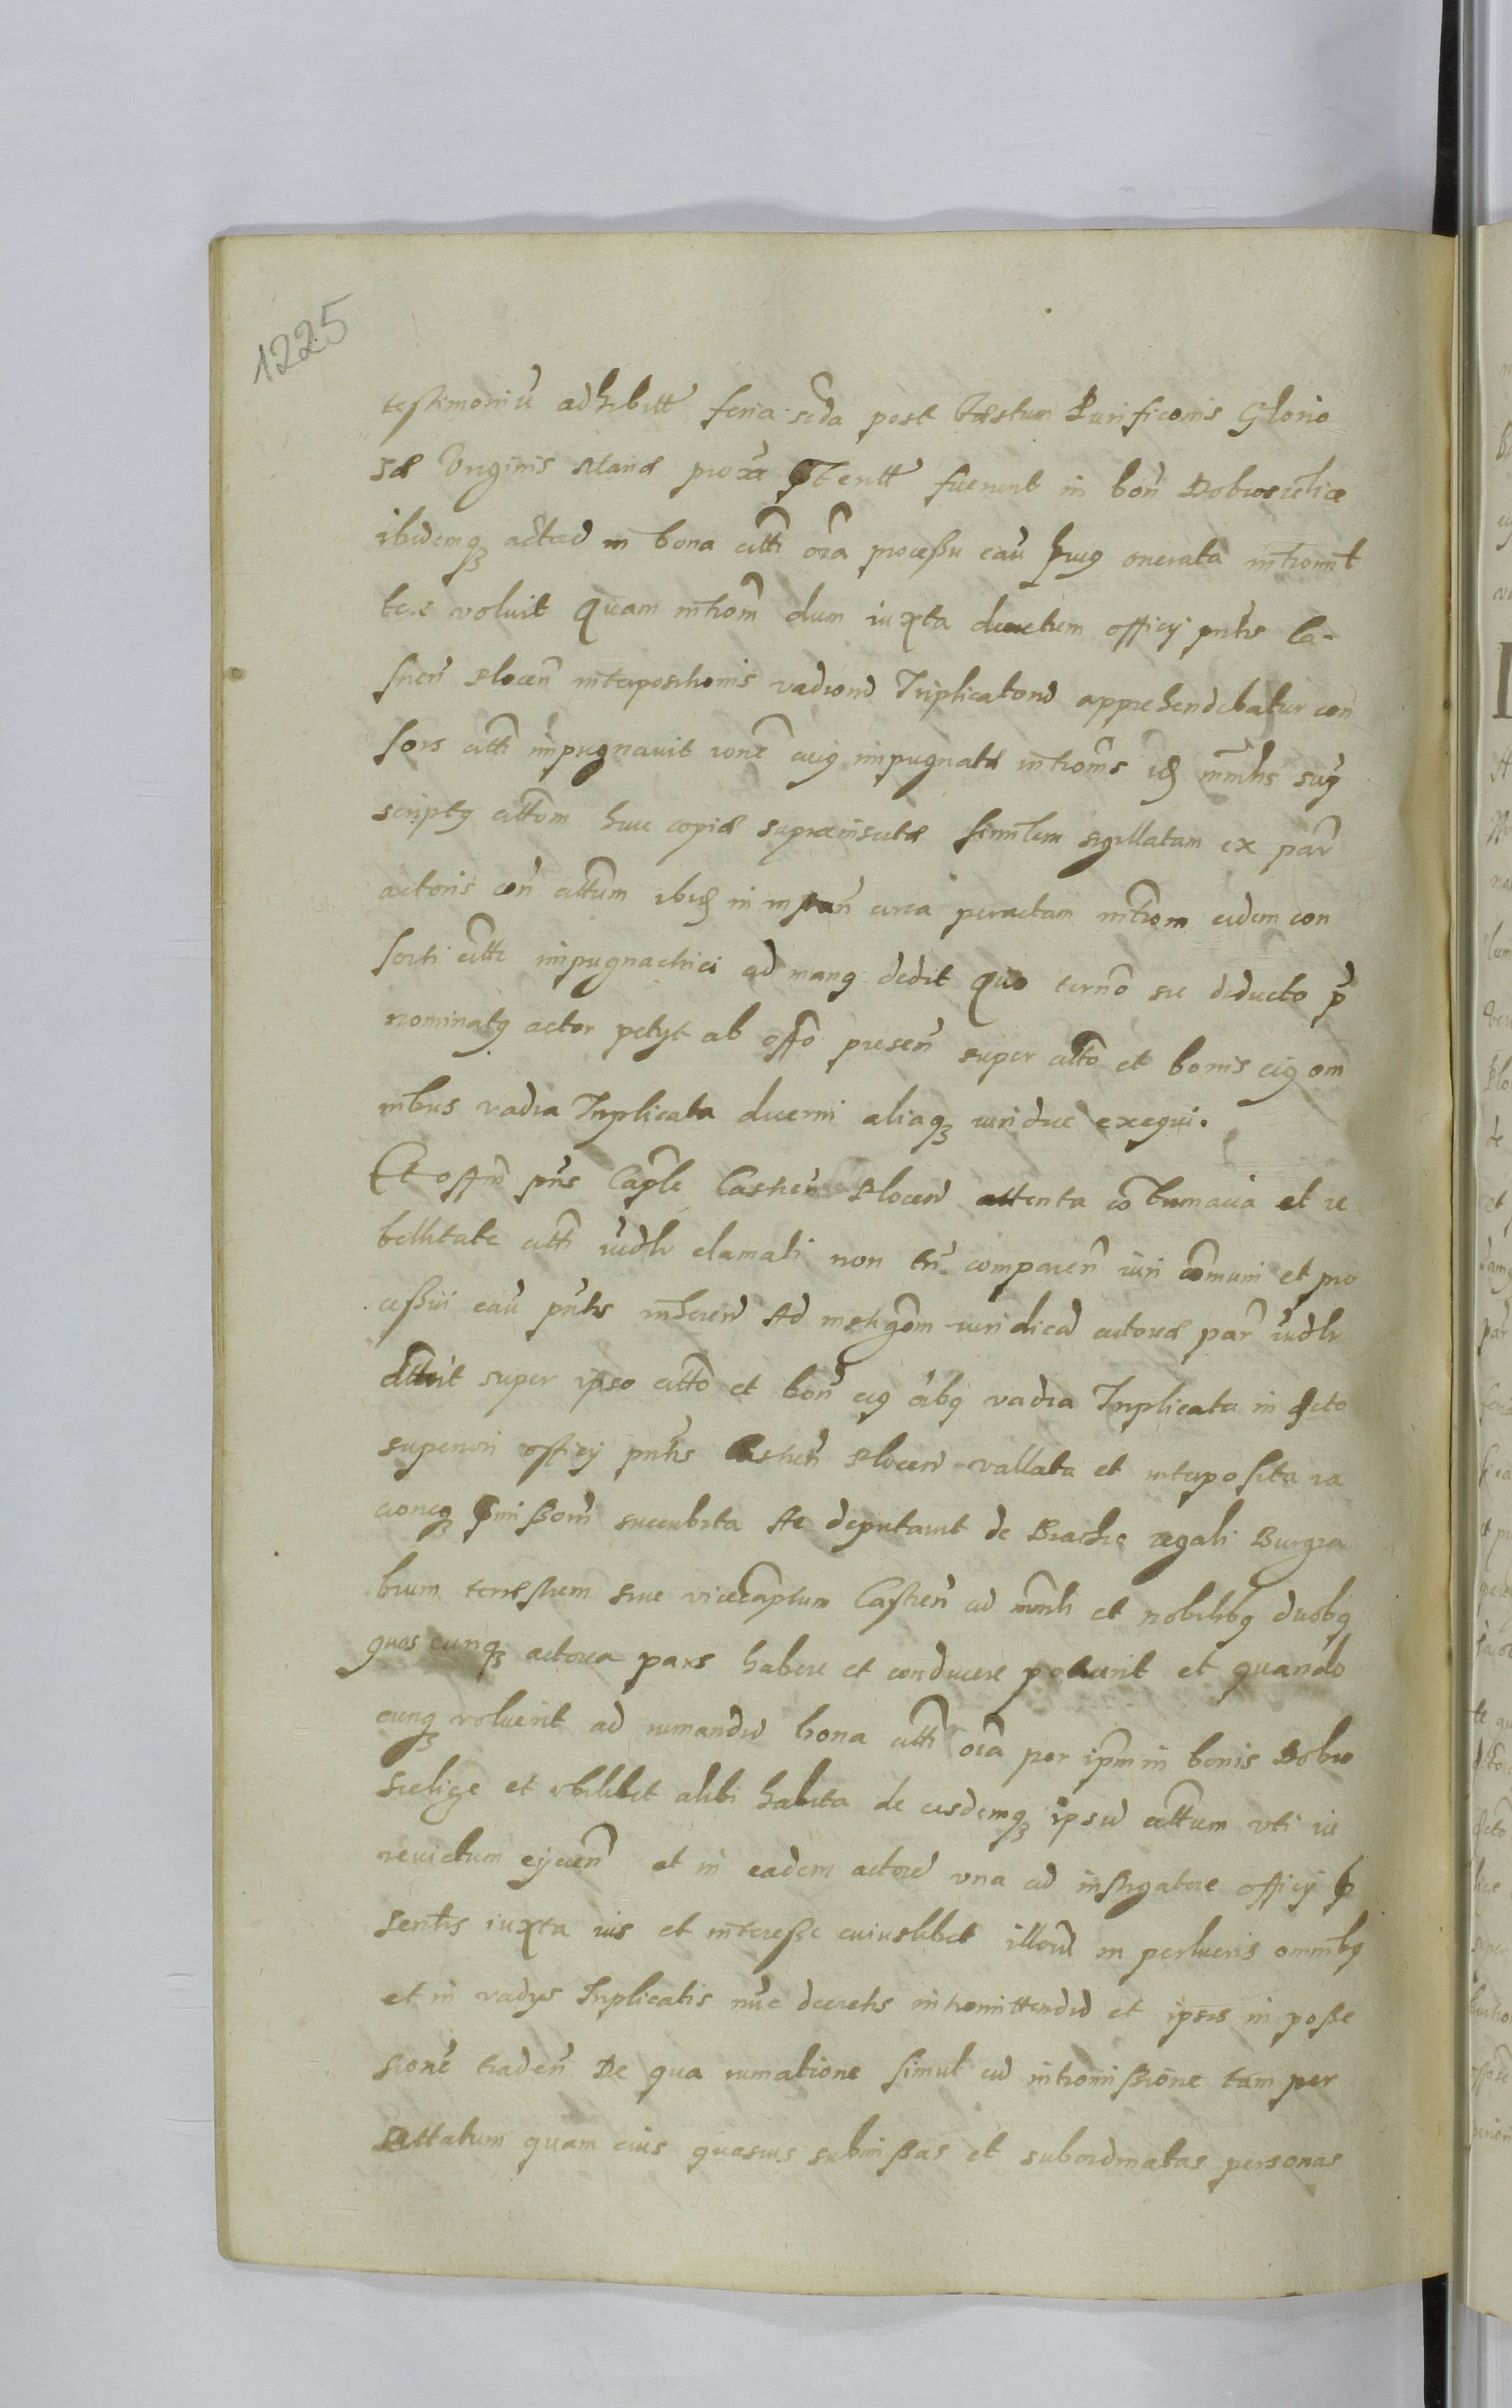 1225
testimoniu adhibitt feria scda post festum Purificonis Glorio
sæ Virginis Mariæ prox͠e fuerunt in bon Dobrosielicæ
ibidemq actad in bona citti oia processu cau huiq onerata intromit
tere voluit Quam introm dum iuxta decretum officij pntis Ca-
stren Plocen interpositionis vadiond Triplicatord apprehendebatur con
sors citti impugnavit rone cuiq impugnatæ introms id mintls suq
scriptq cittom huic copiæ suprainsertæ similem sigillatam ex par
actoris con cittum ibid in instan circa peractam introm eidem con
sorti citti impugnactrici ad manq dedit Quo termo sic deducto p
nominatq actor petyt ab offo presen super citto et bonis eiq om
nibus vadia Triplicata decerni aliaq iuridice exequi.
Et offm pns Caple Castren Plocen attenta contumacia et re
bellitate citti iudlr clamati non tn comparen iuri comuni et pro
cessui cau pntis inheren Ad instigom iuridicd actoreæ par iudlr
citti super ipso citto et bon eiq oibq vadia Triplicata in dcto
superiori officij pntis Castren Plocen vallata et interposita ra
cioneq pmissom succubita Ac deputavit de Brachio regali Burgra
bium terrestrem sive vicecaptum Castren cd minli et nobilibq duobq
quoscunq actorea pars habere et conducere potuerit et quando
cunq voluerit ad rumandu bona citti oia per ipm in bonis Dobro
sielicze et ubilibet alibi habita de eisdemq ipsu cittum uti iu
reuictum eijcien et in eadem actore una cd instigatore officij p
sentis iuxta ius et interesse cuiuslibet illord in perlucris omnibq
et in vadys Triplicatis nuc decretis intromittendd et ipsis in posse
sione traden De qua rumatione simul cd intromissione tam per
cittatum quam eius quasvis submissas et subordinatas personas